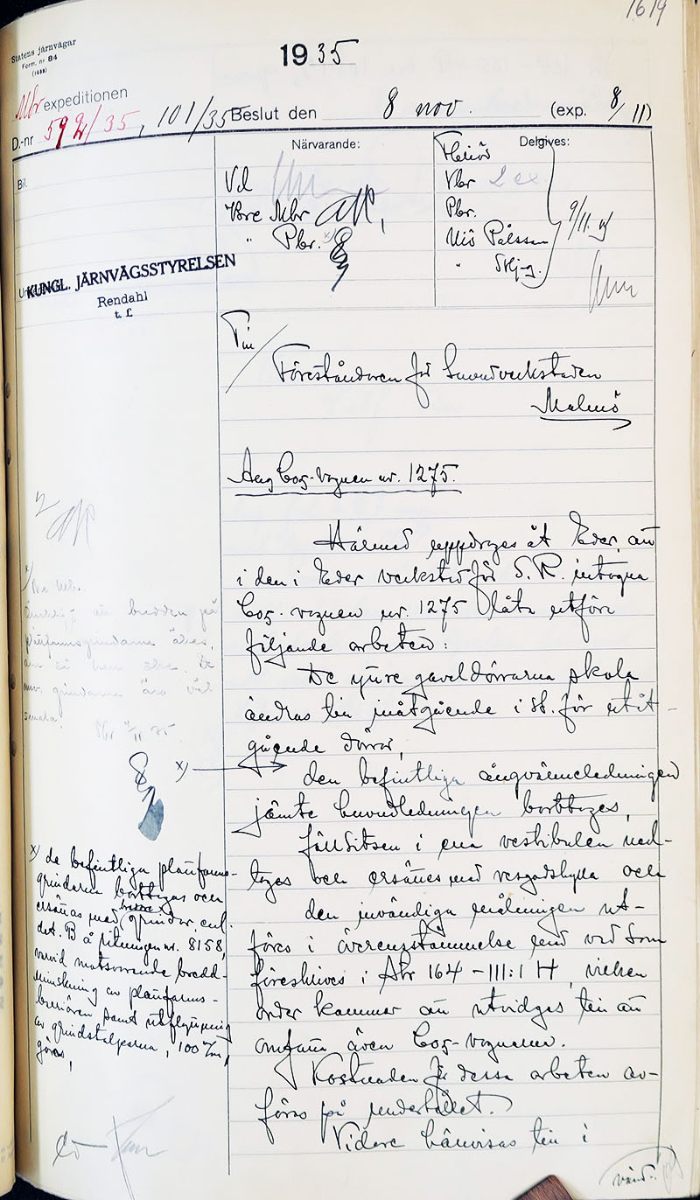 1619
Statens järnvägar
Form. nr 84
1935
Mbr expeditionen
D.-nr 592/35, 101/35
Beslut den 8 nov. (exp. 8/11)
Bil.
Närvarande:
Vd
Bre Mbr
" Pbr. x)
Delgives:
Vbr 2 ex
Pbr.
Uiö Pålsson
" 
9/11
KUNGL. JÄRNVÄGSSTYRELSEN
Rendahl
t. f.
Till
Föreståndaren för Huvudverkstaden
Malmö
Ang Co5-vagnen nr. 1275.
Härmed uppdrages åt Eder att
i den i Eder verkstad för S.R. intagna
Co5-vagnen nr. 1275 låta utföra
följande arbeten:
De yttre gaveldörrarna skola
ändras till inåtgående i st. för utåt-
gående dörrar,
x) den befintliga ångvärmeledningen
jämte huvudledningen borttages,
fällsitsen i ena vestibulen ned-
tages och ersättes med resgodshylla och
den invändiga målningen ut-
föres i överensstämmelse med vad som
föreskrives i Abr 164-111:1 H, vilken
order kommer att utvidgas till att
omfatta även Co5-vagnarna.
Kostnaden för dessa arbeten av-
föres på underhållet.
Vidare hänvisas till i
x) de befintliga plattforms-
grindarna borttagas och
ersättas med grindar enl.
det. B å ritningen nr. 8158,
varvid motsvarande bredd-
minskning av plattforms-
av grindstolparna, 100 m/m,
göres,
vänd.